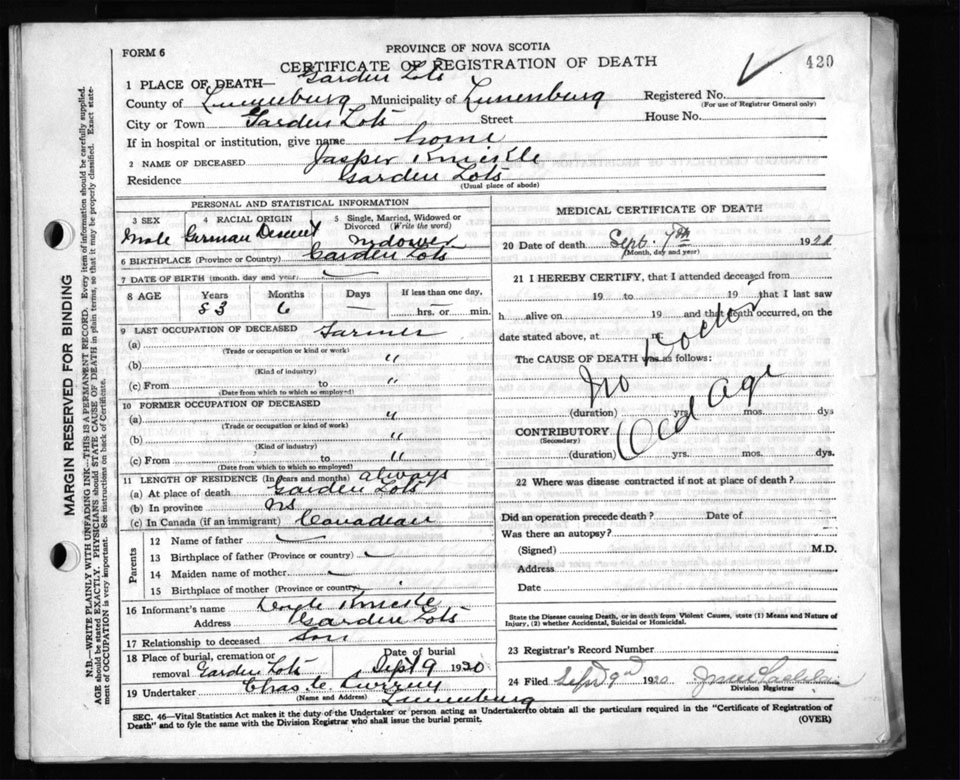 FORM 6
PROVINCE OF NOVA SCOTIA
CERTIFICATE OF REGISTRATION OF DEATH
420
1 PLACE OF DEATH— Garden Lots
County of Lunenburg Municipality of Lunenburg Registered No.
(For use of Registrar General only)
City or Town Garden Lots Street House No.
If in hospital or institution, give name home
2 NAME OF DECEASED Jasper Knickle
Residence Garden Lots
(Usual place of abode)
PERSONAL AND STATISTICAL INFORMATION
3 SEX 4 RACIAL ORIGIN 5 Single, Married, Widowed or
Divorced (Write the word)
Male German Descent Widower
6 BIRTHPLACE (Province or Country) Garden Lots
7 DATE OF BIRTH (month, day and year)
8 AGE Years Months Days If less than one day,
83 6 — hrs. or min.
9 LAST OCCUPATION OF DECEASED Farmer
(a)
(Trade or occupation or kind or work)
(b) "
(Kind of industry)
(c) From to "
(Date from which to which so employed)
10 FORMER OCCUPATION OF DECEASED
(a) "
(Trade or occupation or kind of work)
(b) "
(Kind of industry)
(c) From to "
(Date from which to which so employed)
11 LENGTH OF RESIDENCE (In years and months) always
(a) At place of death Garden Lots
(b) In province NS
(c) In Canada (if an immigrant) Canadian
Parents
12 Name of father —
13 Birthplace of father (Province or country) —
14 Maiden name of mother —
15 Birthplace of mother (Province or country)
16 Informant's name Knickle
Address Garden Lots
17 Relationship to deceased Son
18 Place of burial, cremation or Date of burial
removal Garden Lots Sept 9 1920
19 Undertaker Chas
(Name and Address) Lunenburg
MEDICAL CERTIFICATE OF DEATH
20 Date of death Sept. 7th 192
(Month, day and year)
21 I HEREBY CERTIFY, that I attended deceased from
19 to 19 that I last saw
h alive on 19 and that death occurred, on the
date stated above, at m
The CAUSE OF DEATH was as follows:
No Doctor
(duration) yrs. mos. dys
Old Age
CONTRIBUTORY
(Secondary)
(duration) yrs. mos. dys.
22 Where was disease contracted if not at place of death?
Did an operation precede death? Date of
Was there an autopsy?
(Signed) M.D.
Address
Date
State the Disease causing Death, or in death from Violent Causes, state (1) Means and Nature of
Injury, (2) whether Accidental, Suicidal or Homicidal.
23 Registrar's Record Number
24 Filed Sept 9 1920
Division Registrar
SEC. 46—Vital Statistics Act makes it the duty of the Undertaker or person acting as Undertaker to obtain all the particulars required in the "Certificate of Registration of
Death" and to fyle the same with the Division Registrar who shall issue the burial permit.
(OVER)
MARGIN RESERVED FOR BINDING
N.B.—WRITE PLAINLY WITH UNFADING INK—THIS IS A PERMANENT RECORD. Every item of information should be carefully supplied.
AGE should be stated EXACTLY. PHYSICIANS should STATE CAUSE OF DEATH in plain terms, so that it may be properly classified. Exact state-
ment of OCCUPATION is very important. See instructions on back of Certificate.